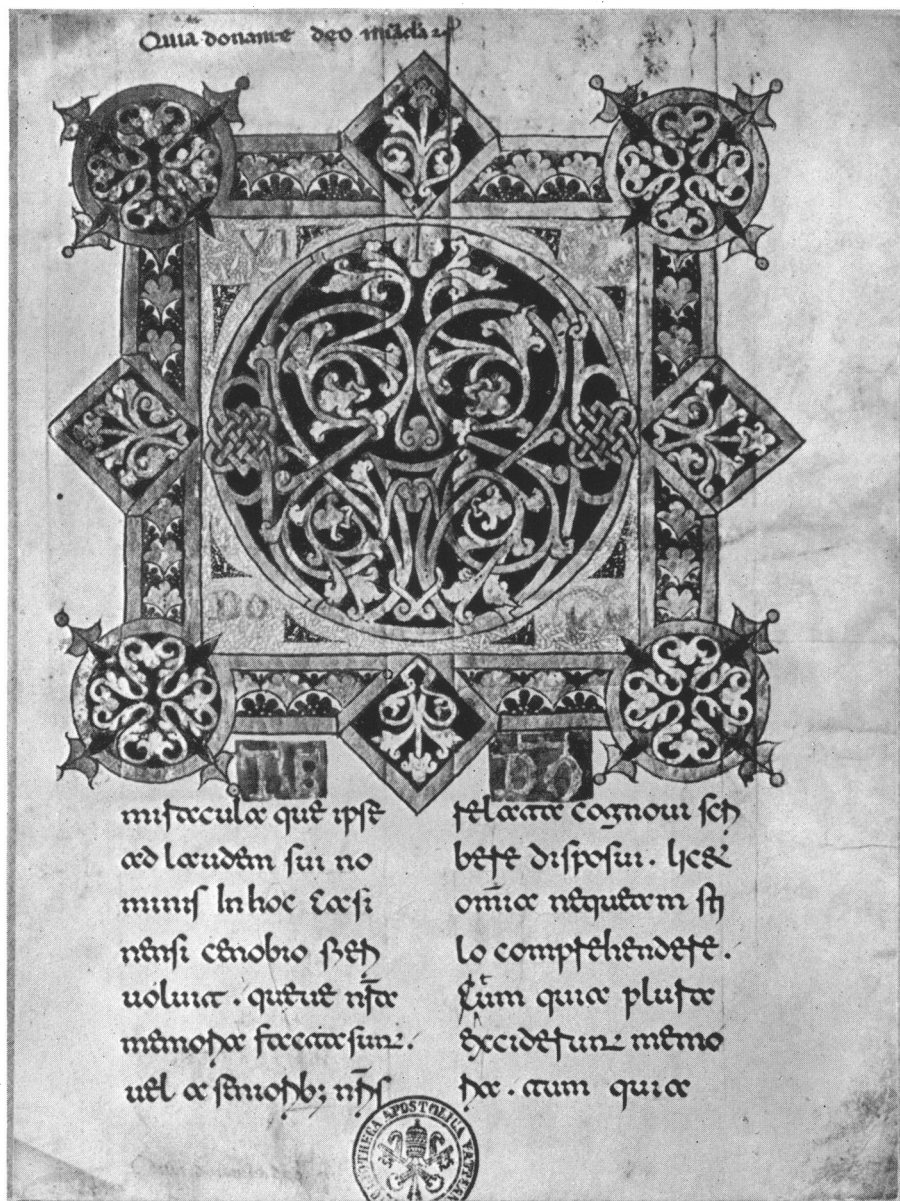 Quia donante deo
DO
NE:
DO
miracula que ipse
ad laudem sui no
minis In hoc Casi
nensi cenobio fieri
uoluit. queue nr̄a
memoria facta sunt.
uel a seniorib; nr̄is
relata cognoui scri
bere disposui. licet
om̄ia nequeam sti
lo comprehendere.
Cum quia plura
exciderunt memo
ria. tum quia
BIBLIOTHECA APOSTOLICA VATICANA